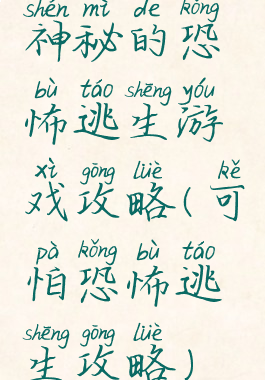 shén mì de kǒng
神秘的恐
bù táo shēng yóu
怖逃生游
xì gōng lüè kě
戏攻略(可
pà kǒng bù táo
怕恐怖逃
shēng gōng lüè
生攻略)